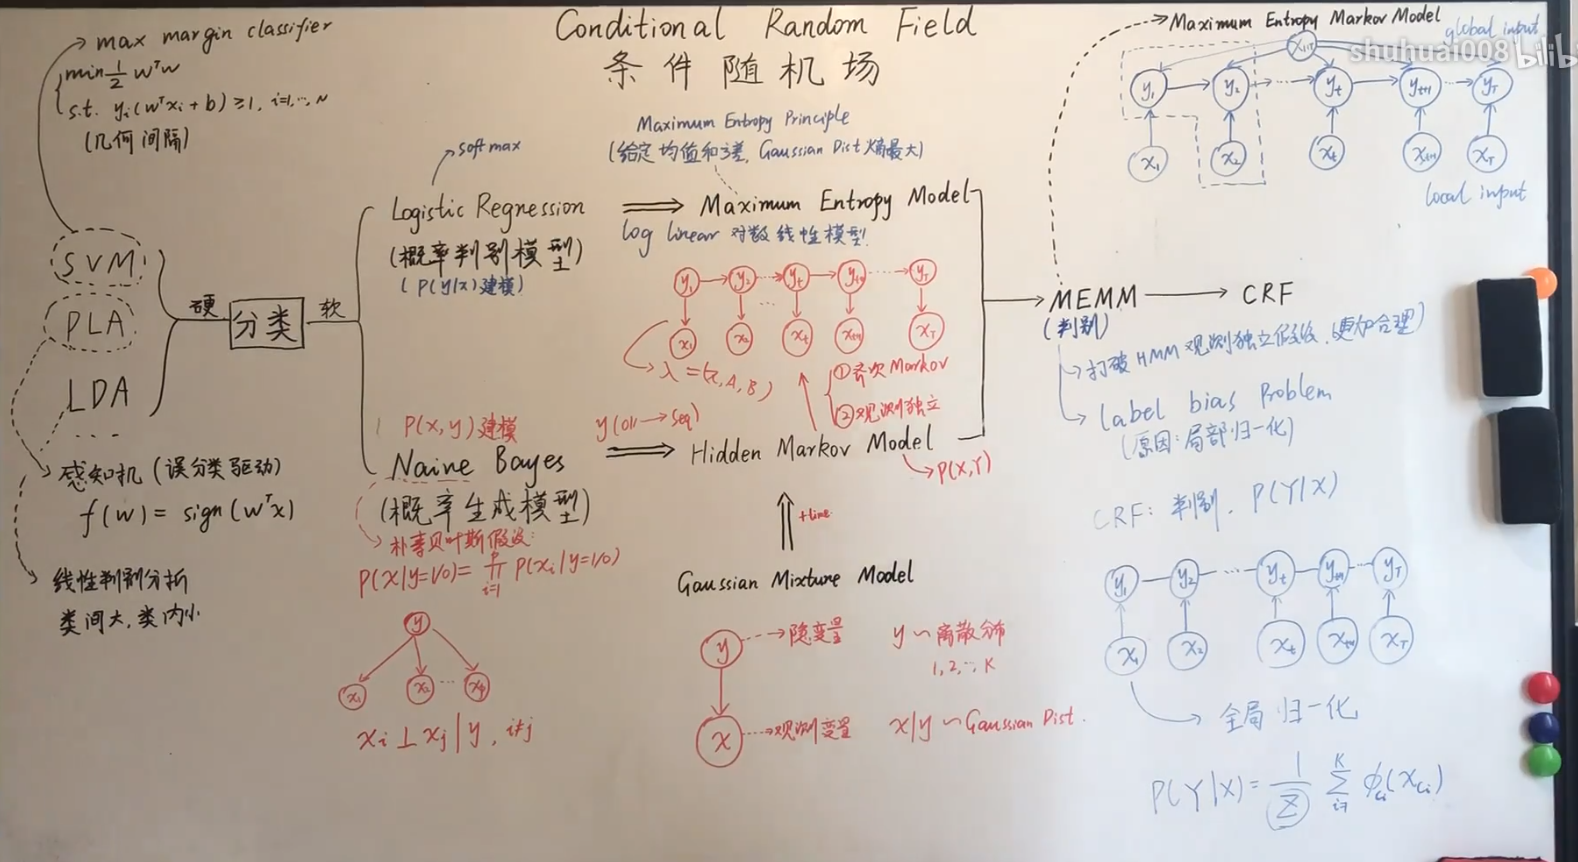 Conditional Random Field
条件随机场
max margin classifier
min ½ wᵀw
s.t. yᵢ(wᵀxᵢ + b) ≥ 1, i=1,…,N
(几何间隔)
SVM
PLA
LDA
...
感知机 (误分类驱动)
f(w) = sign(wᵀx)
线性判别分析
类间大,类内小
硬
分类
软
softmax
Logistic Regression
(概率判别模型)
(P(y|x)建模)
P(x,y)建模
Naive Bayes
(概率生成模型)
朴素贝叶斯假设:
P(x|y=1/0) = ∏ᵢ₌₁ᵖ P(xᵢ|y=1/0)
y
x₁ x₂ ... xₚ
xᵢ ⊥ xⱼ | y, i≠j
Maximum Entropy Principle
(给定均值和方差, Gaussian Dist 熵最大)
Maximum Entropy Model
log linear 对数线性模型
y₁ y₂ ... yₜ yₜ₊₁ ... y_T
x₁ x₂ ... xₜ xₜ₊₁ x_T
λ = (π, A, B)
① 齐次 Markov
② 观测独立
y(0/1 → seq)
Hidden Markov Model
P(X,Y)
+time
Gaussian Mixture Model
y
隐变量
y ~ 离散分布
1, 2, …, K
x
观测变量
x|y ~ Gaussian Dist.
Maximum Entropy Markov Model
global input
shuhuai008
bilibili
x₁:T
y₁ y₂ ... yₜ yₜ₊₁ y_T
x₁ x₂ xₜ xₜ₊₁ x_T
local input
MEMM
CRF
(判别)
打破HMM观测独立假设,(更加合理)
label bias problem
(原因:局部归一化)
CRF: 判别, P(Y|X)
y₁ y₂ ... yₜ yₜ₊₁ ... y_T
x₁ x₂ xₜ xₜ₊₁ x_T
全局归一化
P(Y|X) = 1/Z ∑ᵢ₌₁ᴷ φcᵢ(xcᵢ)